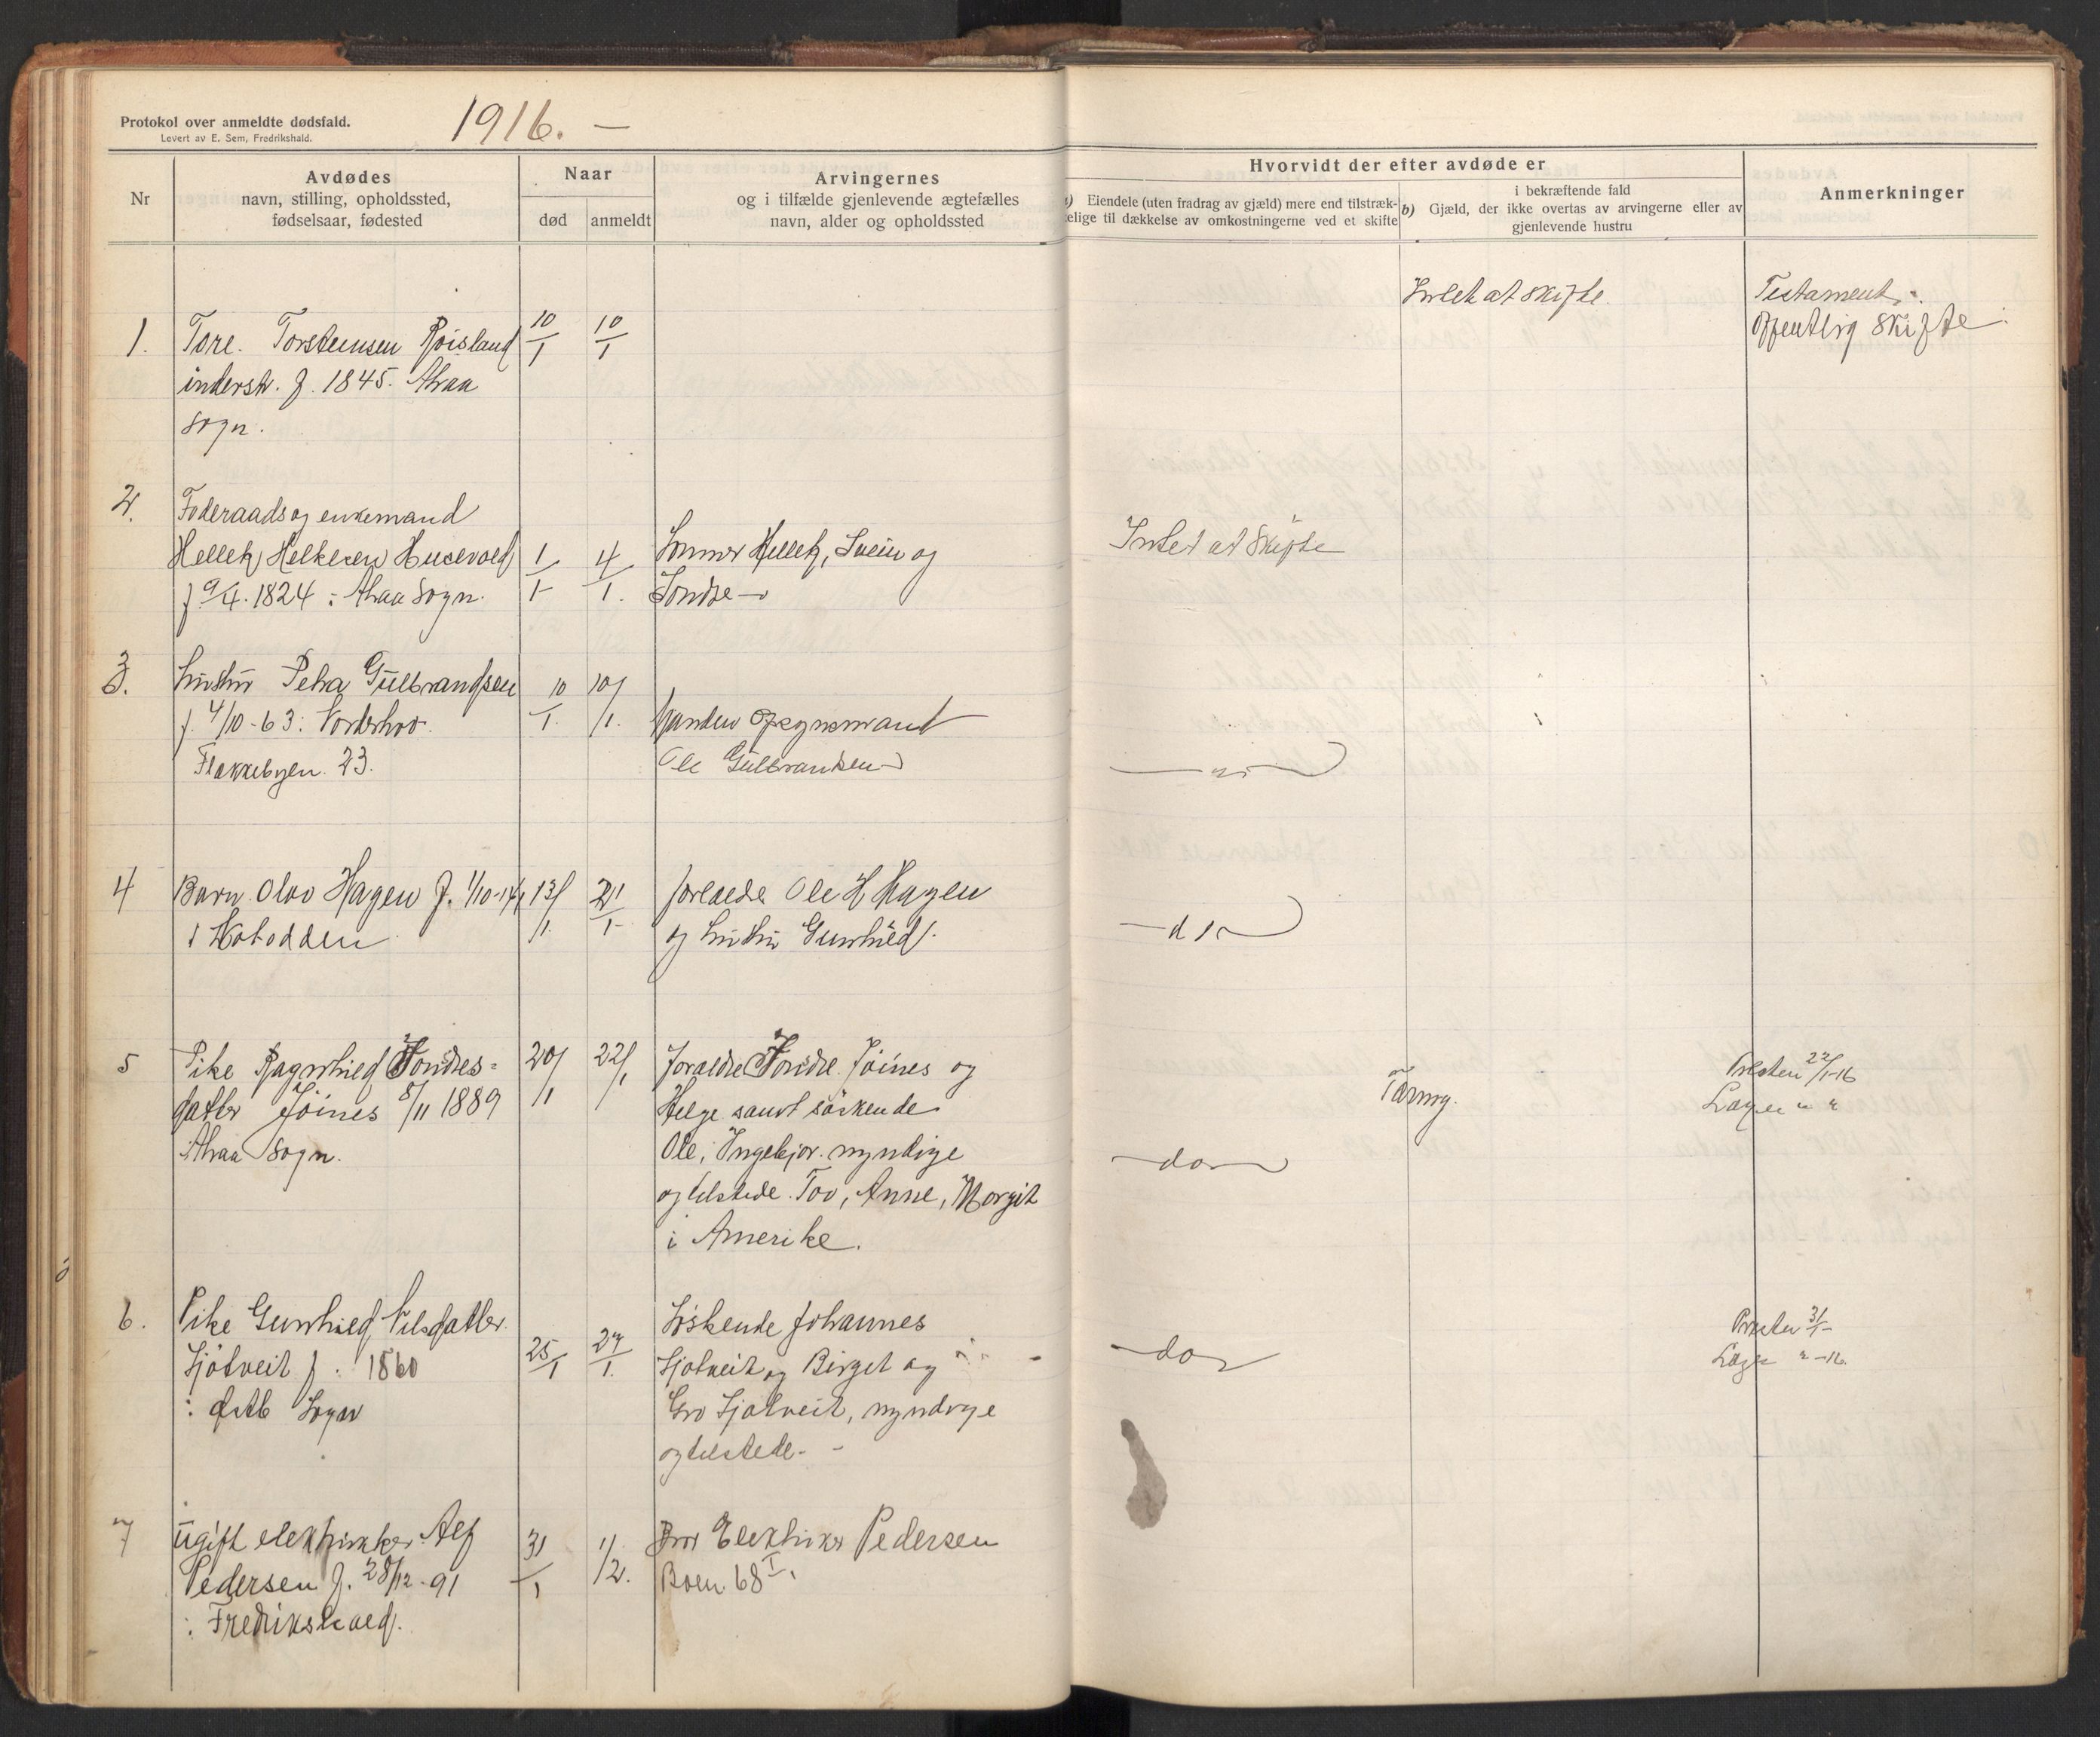 Protokol over anmeldte dødsfald.
Levert av E. Sem, Fredrikshald.
1916. —
Nr
Avdødes
navn, stilling, opholdssted,
fødselsaar, fødested
Naar
død
anmeldt
Arvingernes
og i tilfælde gjenlevende ægtefælles
navn, alder og opholdssted
Hvorvidt der efter avdøde er
Eiendele (uten fradrag av gjæld) mere end tilstræk-
kelige til dækkelse av omkostningerne ved et skifte
i bekræftende fald
b) Gjæld, der ikke overtas av arvingerne eller av
gjenlevende hustru
Anmerkninger
1.
Tore. Torsteinsen Roisland
inderst. f. 1845. Atraa
sogn.
10/1
10/1
Intet at skifte
Testament.
Offentlig skifte.
2.
Foderaads og enkemand
Hellek Helkesen Husevold
f 9/4. 1824 : Atraa sogn.
1/1
4/1.
Sønner Hellek, Svein og
Sondre
Intet at skifte
3.
hustru Petra Gulbrandsen
f. 4/10-63: Norderhov.
Flekkebyen. 23.
10/1.
10/1.
Manden Opsynsmand
Ole Gulbrandsen
4
Barn Olav Hagen f. 1/10-14
i Notodden
13/1.
21/1
forældre Ole H Hagen
og hustru Gunhild.
do
5
Pike Ragnhild Tondres=
datter Jöines 8/11 1889
Atraa Sogn.
20/1
22/1
foraeldre Tondre Jöines og
Helge samt söskende
Ole, Ingebjor. myndige
og tilstede. Tov, Anne, Margit
i Amerike.
do
Tæring.
Presten 22/1-16
Lægen " "
6.
Pike Gunhild Nilsdatter
Sjötveit f : 1860
: Sogn
25/1
27/1.
Söskende Johannes
Sjotveit og Birgit og
Gro Sjotveit, myndige
og tilstede. -
do
Presten 31/1-
Læge " -16.
7
ugift elektrikker Alf
Pedersen f. 28/12-91
: Fredrikshald.
31/1
1/2.
Bror Elektriker Pedersen
Boen 68 I.